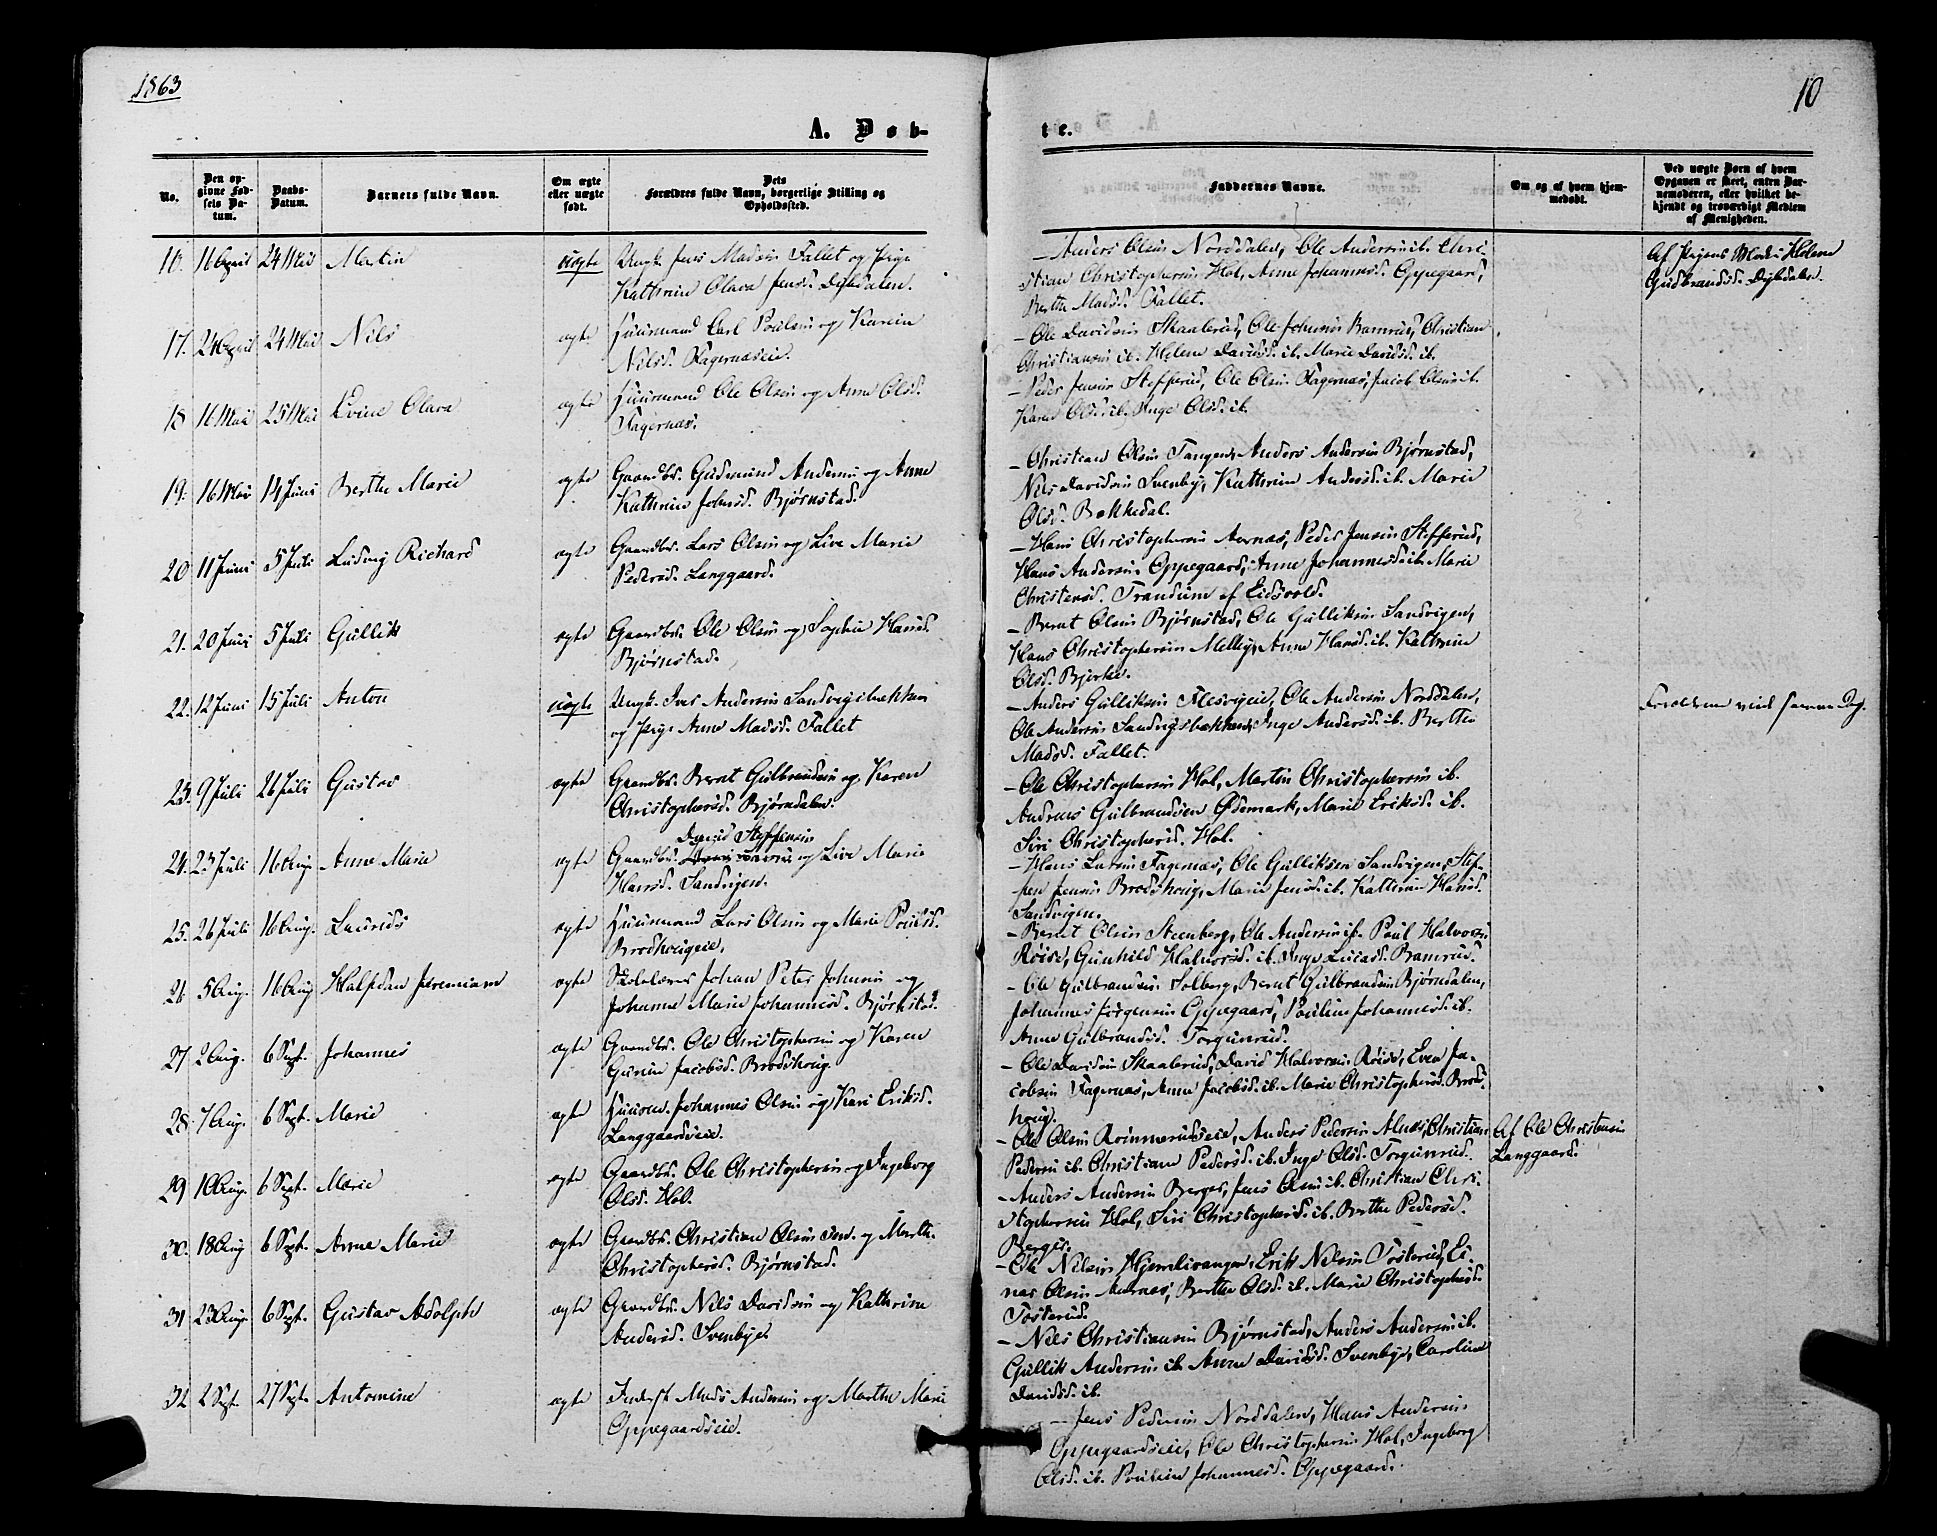 1863
10
A. Døb-
te.
No.
Den op-
givne Fød-
sels Da-
tum.
Daabs-
Datum.
Barnets fulde Navn.
Om ægte
eller uægte
født.
Dets
Forældres fulde Navn, borgerlige Stilling og
Opholdssted.
Faddernes Navne.
Om og af hvem hjem-
medøbt.
Ved uægte Børn af hvem
Opgaven er skeet, enten Bar-
nemoderen, eller hvilket be-
kjendt og troværdigt Medlem
af Menigheden.
16. 16 April 24 Mai Martin uægte Ungk. Jens Madsen Fallet og Pige
Kathrine Olava Jensd. Dybdalen.
- Anders Olsen Norddalen, Ole Andersen ib. Chri-
stian Christophersen Hol, Anne Johannesd. Oppegaard,
Berthe Madsd. Fallet.
Af Pigens Moder Helene
Gudbrandsd. Dybdalen.
17. 24 April 24 Mai Nils ægte Huusmand Carl Poulsen og Karen
Nilsd. Fagernæseie.
- Ole Davidsen Skaalerud, Ole Johnsen Ramrud, Christian
Christiansen ib. Helene Davidsd. ib. Marie Davidsd. ib.
18 16 Mai 25 Mai Evine Olava ægte Huusmand Ole Olsen og Anne Olsd.
Fagernæs.
- Peder Jensen Stefferud, Ole Olsen Fagernæs, Jacob Olsen ib.
Karen Olsd. ib. Inge Olsd. ib.
19. 16 Mai 14 Juni Berthe Marie ægte Gaardbr. Gudmund Andersen og Anne
Kathrine Johnsd. Bjørnstad.
- Christian Olsen Tangen, Anders Andersen Bjørnstad,
Nils Davidsen Svenby, Kathrine Andersd. ib. Marie
Olsd. Bakkedal.
20 11 Juni 5 Juli Ludvig Richard ægte Gaardbr. Lars Olsen og Live Marie
Pedersd. Langgaard.
- Hans Christophersen Aurnæs, Peder Jensen Stefferud,
Hans Andersen Oppegaard, Anne Johannesd. ib. Marie
Christensd. Trandum af Eidsvold.
21. 20 Juni 5 Juli Gullik ægte Gaardbr. Ole Olsen og Sophie Hansd.
Bjørnstad.
- Bernt Olsen Bjørnstad, Ole Gulliksen Sandvigen,
Hans Christophersen Melby, Anne Hansd. ib. Kathrine
Olsd. Bjerke.
22. 12 Juni 15 Juli Anton uægte Ungk. Iver Andersen Sandvigsbakken
og Pige Anne Madsd. Fallet
- Anders Gulliksen Næsvigeie, Ole Andersen Norddalen,
Ole Andersen Sandvigsbakken, Inge Andersd. ib. Berthe
Madsd. Fallet.
Forældrene viet samme Dag.
23. 9 Juli 26 Juli Gustav ægte Gaardbr. Bernt Gulbrandsen og Karen
Christophersd. Bjørndalen.
- Ole Christophersen Hol, Martin Christophersen ib.
Andreas Gulbrandsen Ødemark, Marie Eriksd. ib.
Siri Christophersd. Hol.
David Steffensen
24. 23 Juli 16 Aug. Anne Marie ægte Gaardbr. og Live Marie
Hansd. Sandvigen.
- Hans Larsen Fagernæs, Ole Gulliksen Sandvigen, Stef-
fen Jensen Brodshoug, Marie Jensd. ib. Kathrine Hansd.
Sandvigen.
25. 26 Juli 16 Aug. Laurids ægte Huusmand Lars Olsen og Marie Poulsd.
Brodshougeie.
- Bernt Olsen Steenberg, Ole Andersen ib. Poul Halvorsen
Røise, Gunhild Halvorsd. ib. Inge Lucasd. Ramrud.
26 5 Aug. 16 Aug Halfdan Jeremiam ægte Skolelærer Johan Peter Johnsen og
Johanne Marie Johannesd. Bjørnstad.
- Ole Gulbrandsen Solberg, Bernt Gulbrandsen Bjørndalen,
Johannes Jørgensen Oppegaard, Pouline Johannesd. ib.
Anne Gulbrandsd. Torgunrud.
27 2 Aug. 6 Sept. Johannes ægte Gaardbr. Ole Christophersen og Karen
Gurine Jacobsd. Brodshoug.
- Ole Davidsen Skaalerud, David Halvorsen Røise, Even Ja-
cobsen Fagernæs, Anne Jacobsd. ib. Marie Christophersd. Brods-
houg.
28. 7 Aug. 6 Sept. Marie ægte Huusm. Johannes Olsen og Kari Eriksd.
Langgaardseie.
- Ole Olsen Rommerudseie, Anders Pedersen Alnæs, Christian
Pedersen ib. Christiane Pedersd. ib. Inge Olsd. Torgunrud.
Af Ole Christensen
Langgaard.
29 10 Aug. 6 Sept. Marie ægte Gaardbr. Ole Christophersen og Ingeborg
Olsd. Hol.
- Anders Andersen Berger, Jens Olsen ib. Christian Chri-
stophersen Hol, Siri Christophersd. ib. Berthe Pedersd.
Berger.
30. 18 Aug 6 Sept. Anne Marie ægte Gaardbr. Christian Olsen Sen. og Marth.
Christophersd. Bjørnstad.
- Ole Nilsen Hjemlivangen, Erik Nilsen Tosterud, Ei-
nar Olsen Aurnæs, Berthe Olsd. ib. Marie Christophersd.
Tosterud.
31 23 Aug. 6 Sept. Gustav Adolph ægte Gaardbr. Nils Davidsen og Kathrine
Andersd. Svenby.
- Nils Christiansen Bjørnstad, Anders Andersen ib.
Gullik Andersen ib. Anne Davidsd. Svenby, Caroline
Davidsd. ib.
32 2 Sept. 27 Sept. Antomine ægte Inderst Mads Andersen og Marthe Marie
Oppegaardseie.
- Jens Pedersen Norddalen, Hans Andersen
Oppegaardseie, Ole Christophersen Hol, Ingeborg
Olsd. ib. Pouline Johannesd. Oppegaard.